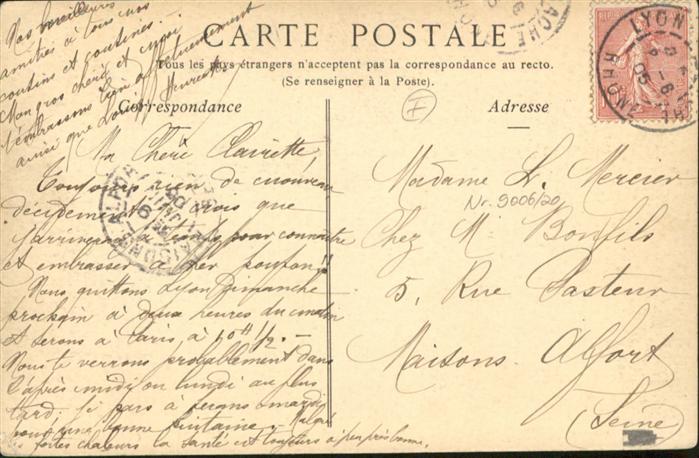 Nos meilleures
amitiés à tous nos
cousins et cousines.
Mon gros chéri et moi
t'embrassons bien affectueusement
ainsi que
CARTE POSTALE
Tous les pays étrangers n'acceptent pas la correspondance au recto.
(Se renseigner à la Poste).
Correspondance
Ma Chère Clairette,
Toujours rien de nouveau
décidément je crois que
j'arriverai à pour connaître
et embrasser ce cher poupon!!
Nous quittons Lyon Dimanche
prochain à deux heures du matin
et serons à Paris, à 10H 1/2. —
Nous te verrons probablement dans
l'après midi ou lundi au plus
tard. Je pars à mardi
pour une bonne . Malgré
fortes chaleurs la santé est toujours à peu près bonne.
Adresse
Madame L. Mercier
Nr. 9006/20
Chez M. Bonfils
5, Rue Pasteur
Maisons-Alfort
(Seine)
LYON
RHONE